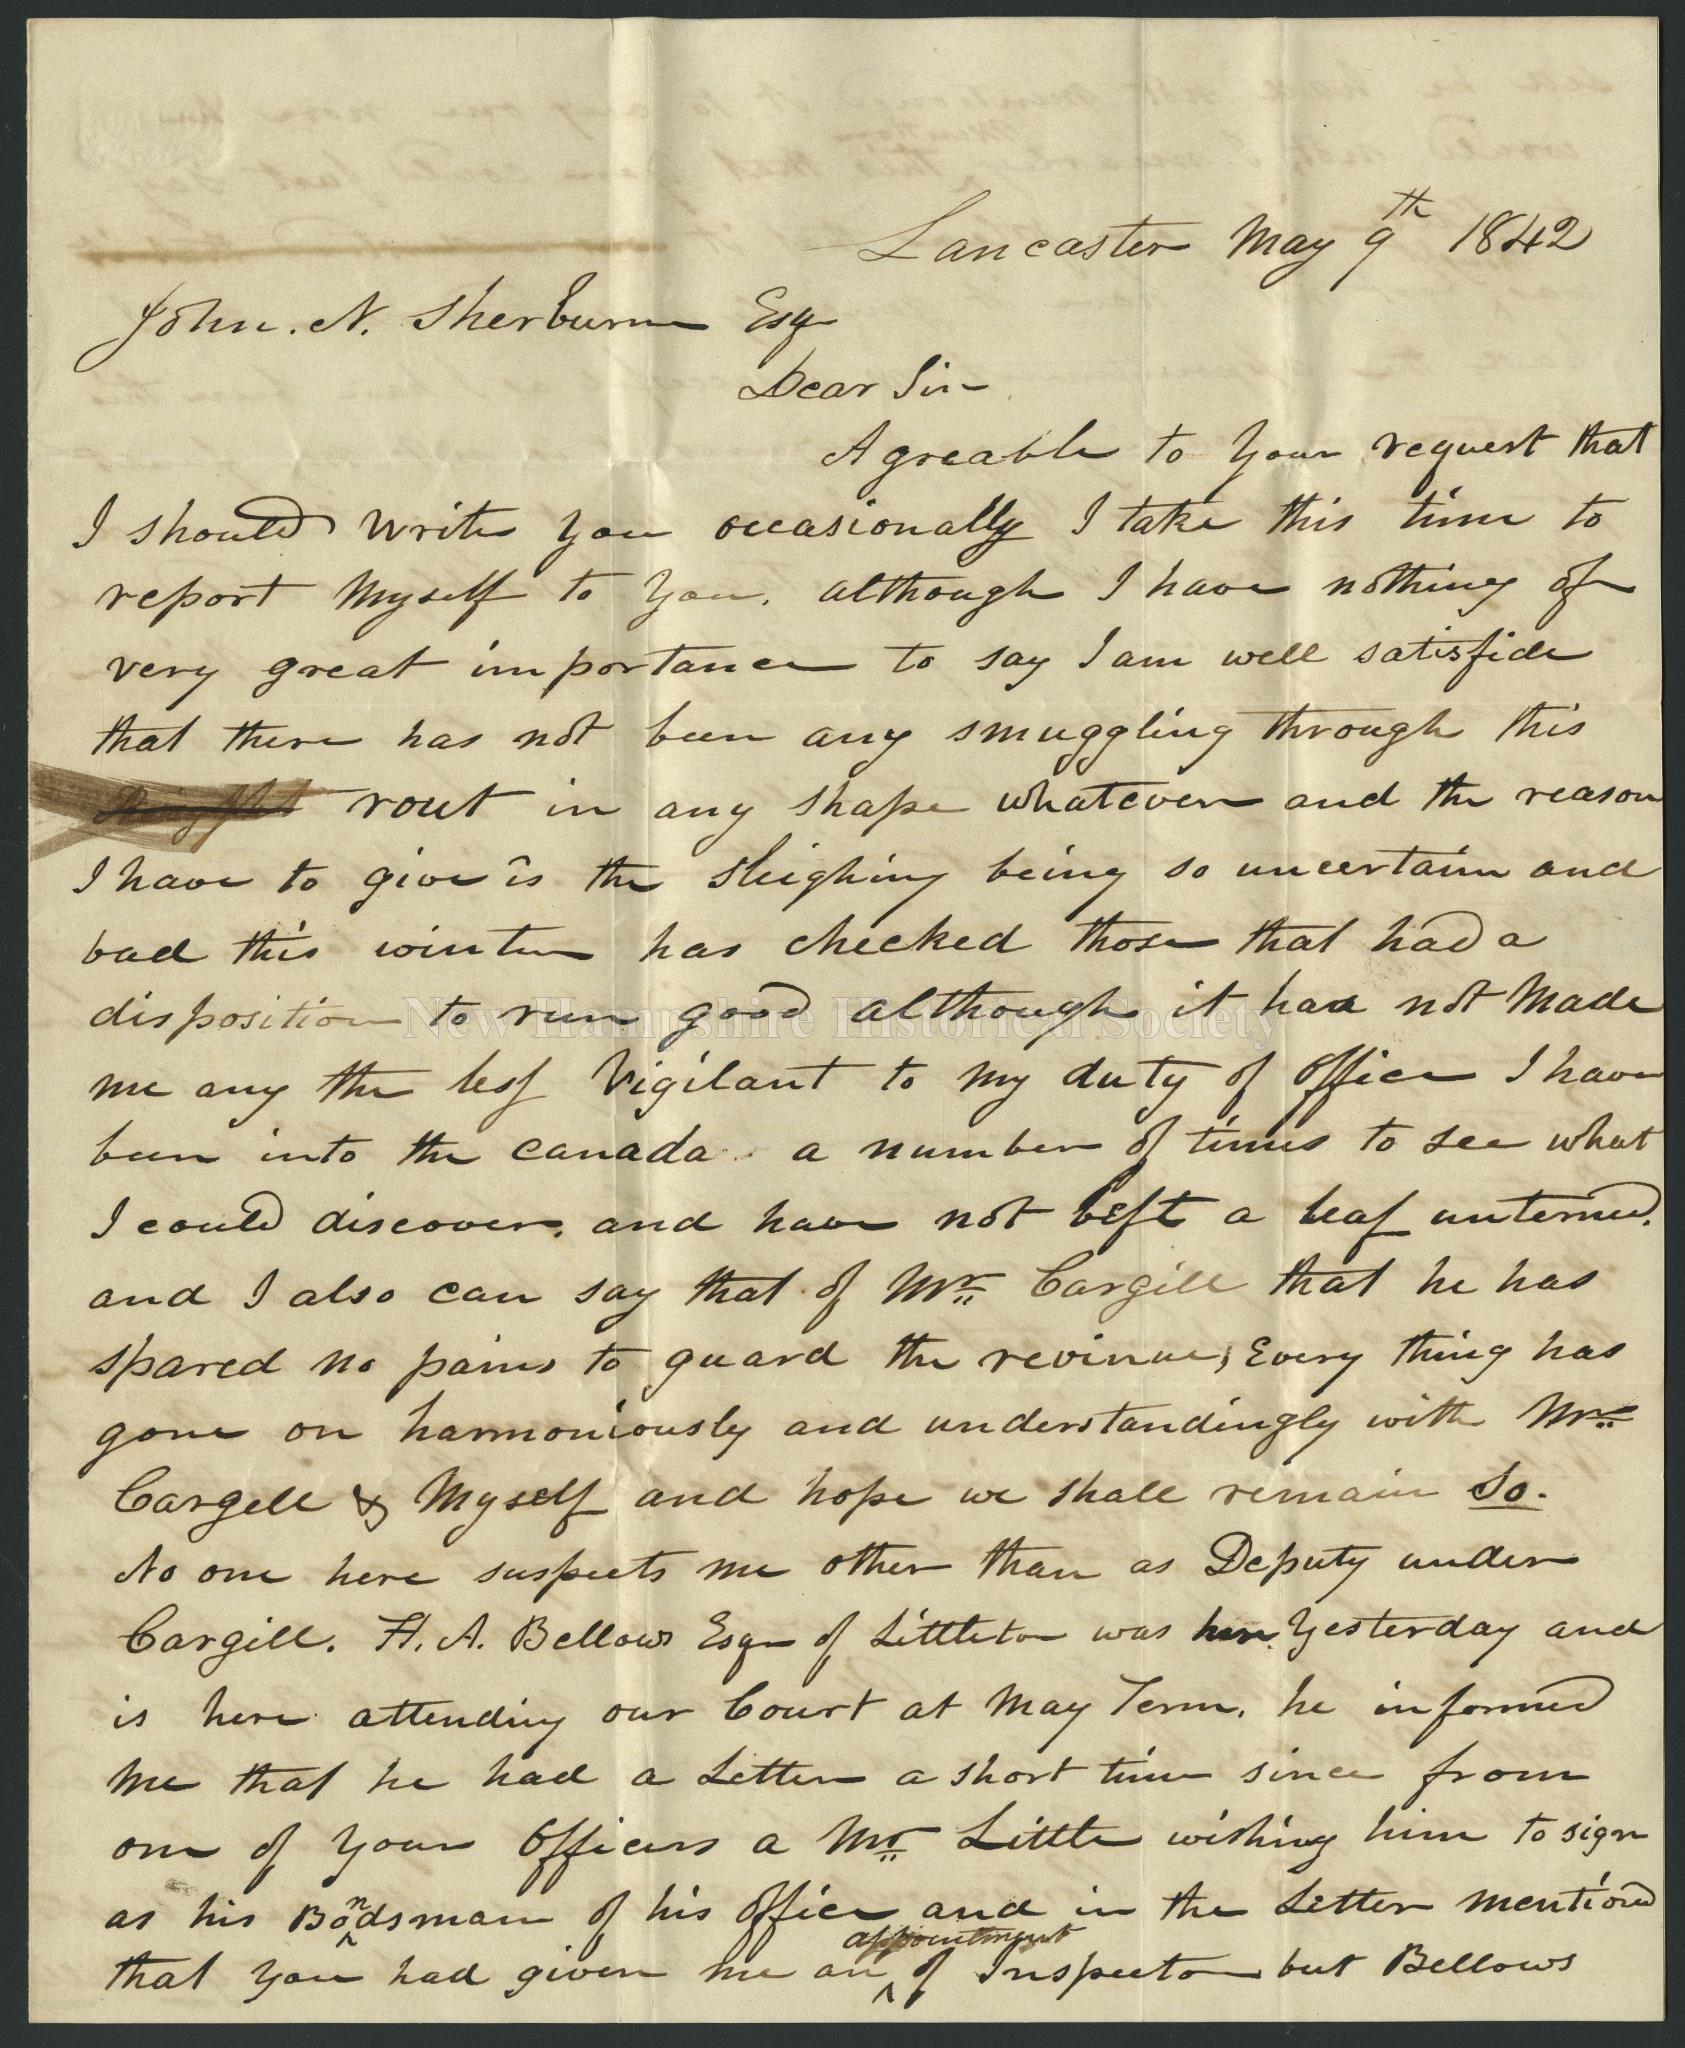 Lancaster May 9th 1842
John. N. Sherburne Esqr
Dear Sir
Agreable to your request that
I should write you occasionally I take this time to
report myself to you. although I have nothing of
very great importance to say I am well satisfide
that there has not been any smuggling through this
rout in any shape whatever and the reason
I have to give is the sleighing being so uncertain and
bad this winter has checked those that had a
disposition to run good although it has not made
me any the less vigilant to my duty of office I have
been into the canada a number of times to see what
I could discover. and have not left a leaf unterned.
and I also can say that of Mr. Cargill that he has
spared no pains to guard the revinue, Every thing has
gone on harmoniously and understandingly with Mr.
Cargell & Myself and hope we shall remain So.
No one here suspects me other than as Deputy under
Cargill. H. A. Bellows Esqr of Littleton was here yesterday and
is here attending our Court at May Term. he informed
me that he had a Letter a short time since from
one of your Officers a Mr. Little wishing him to sign
as his Bondsman of his office and in the Letter mentioned
that you had given me an appointment of Inspector but Bellows
New Hampshire Historical Society